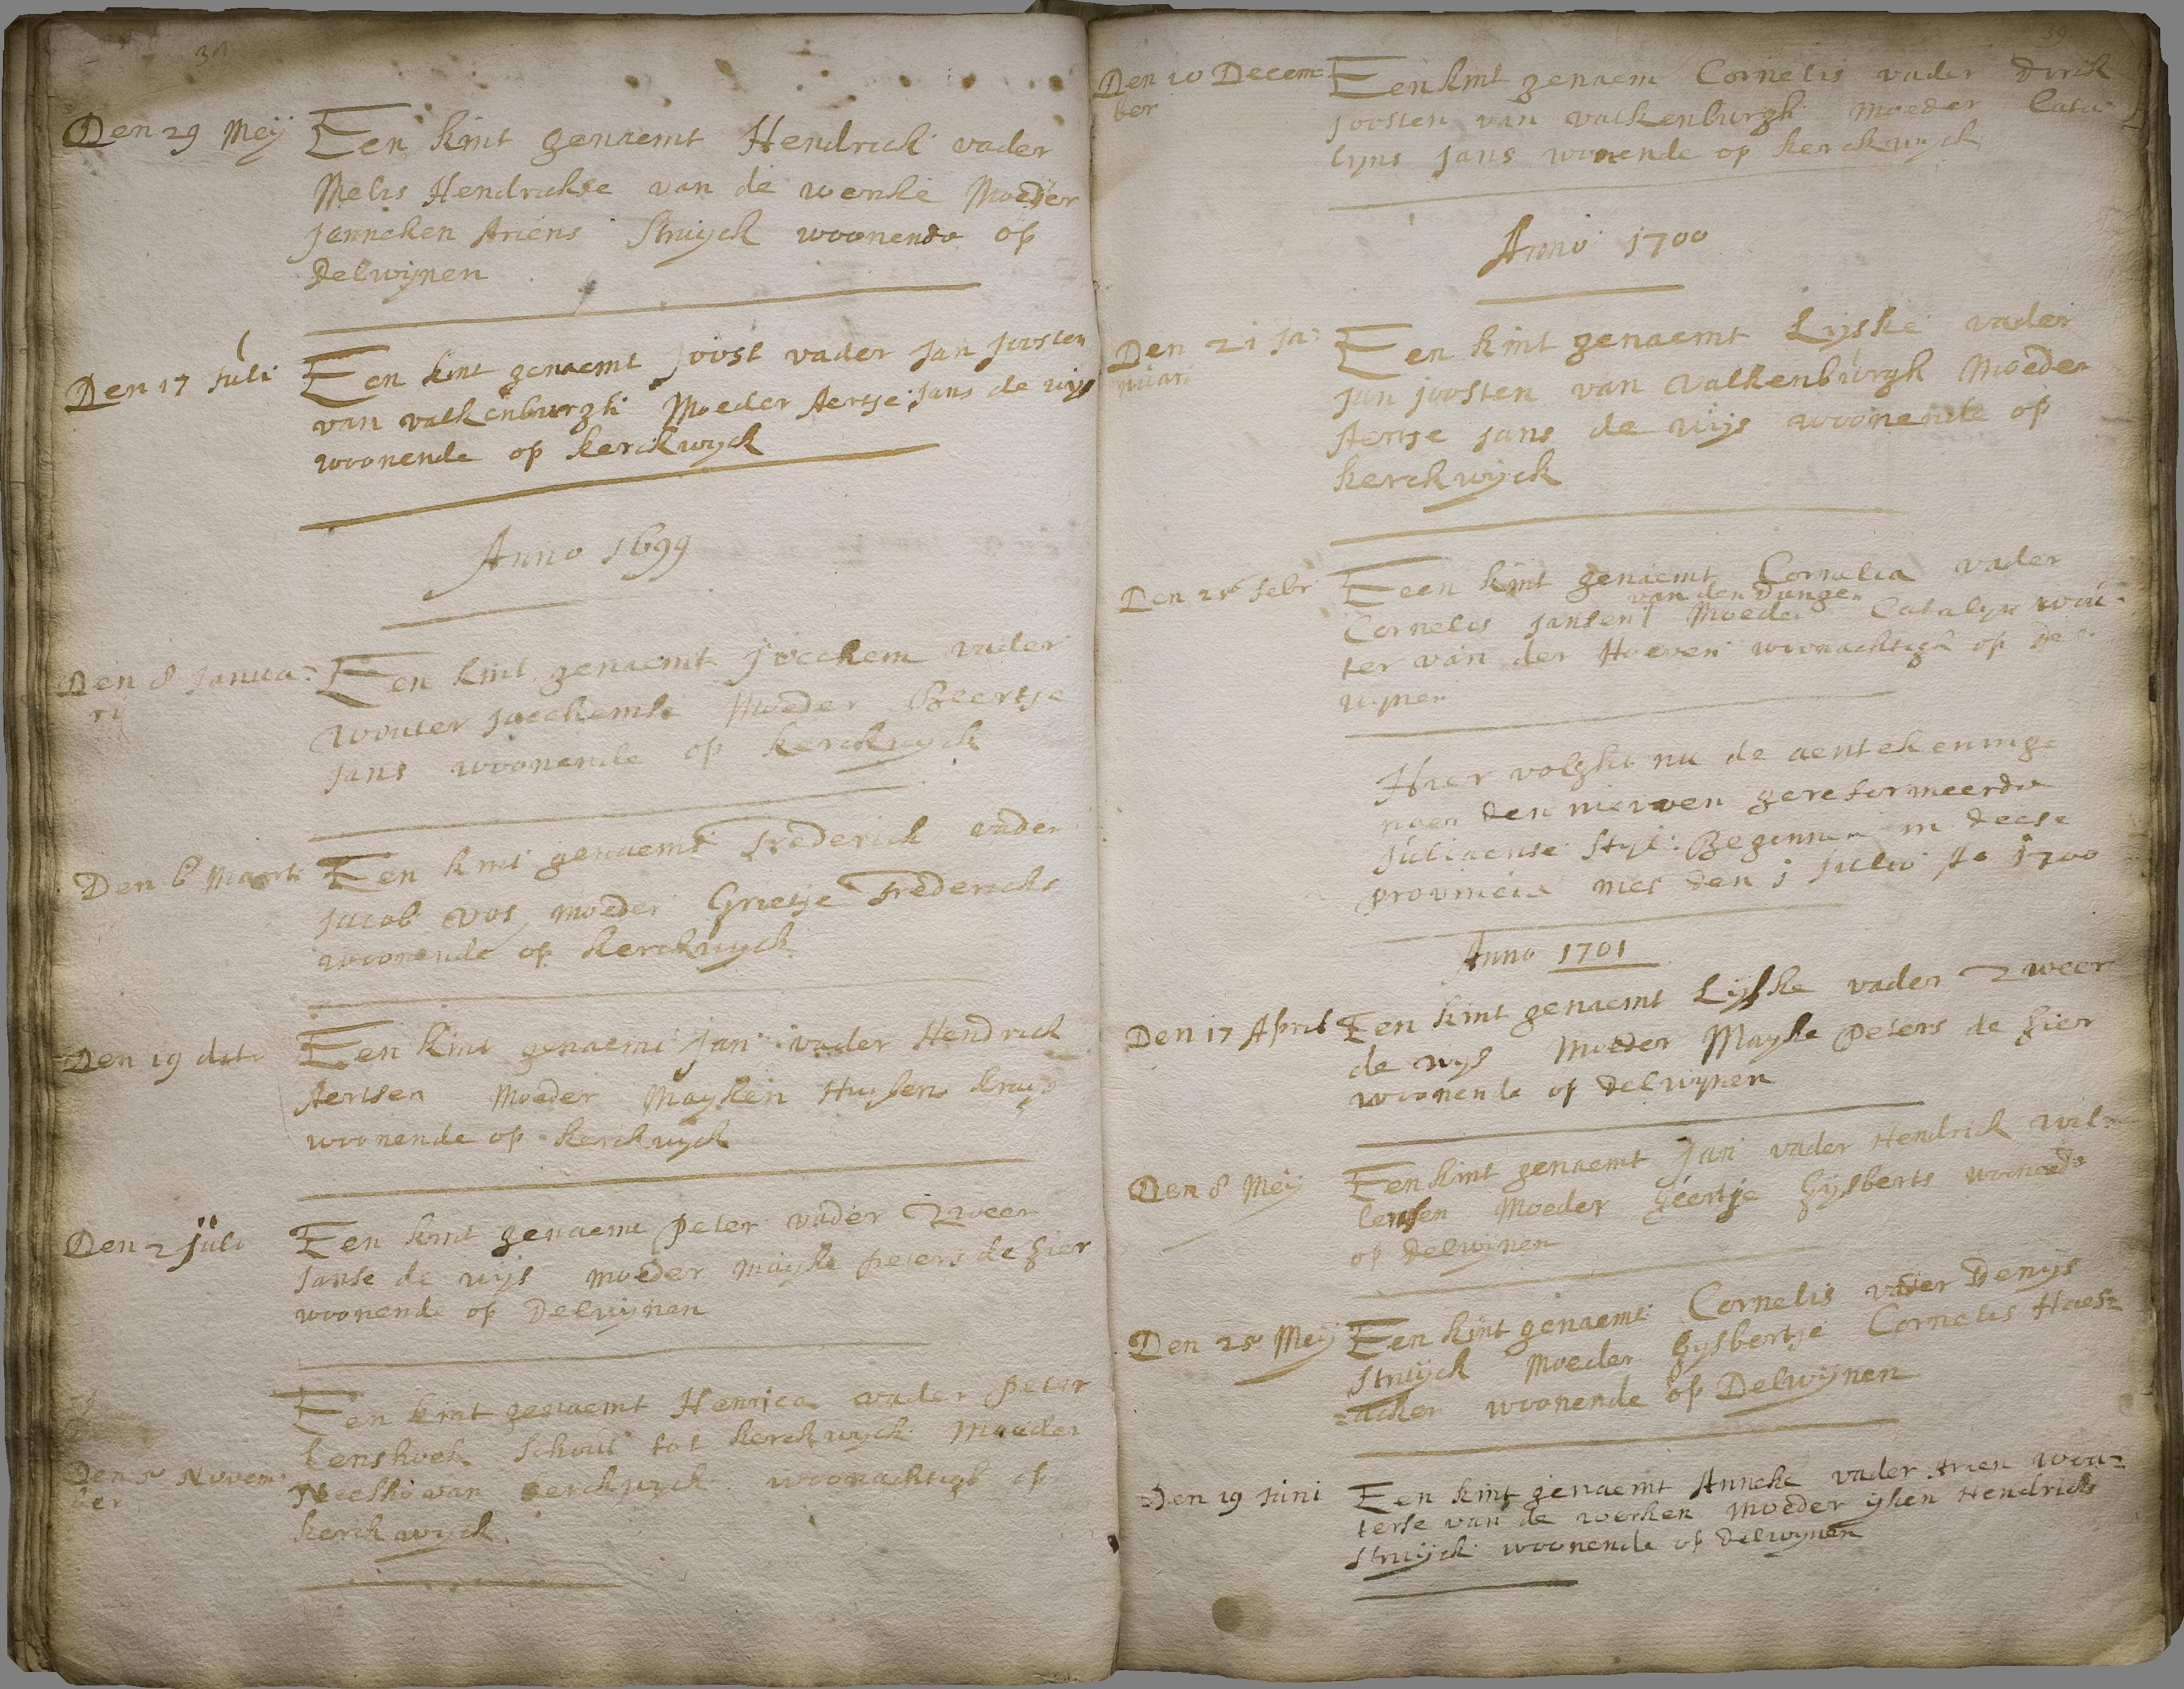 Den 29 Meij Een kint genaemt Hendrick vader
Melis Hendrickse van de werke Moeder
Janneken Ariens Struijck woonende op
Delwijnen
Den 17 Juli Een kint genaemt Joost vader Jan Joosten
van valkenburgh Moeder Aertje Jans de wijs
woonende op kerckwijck
Anno 1699
Den 8 Janua= Een kint genaemt Jocchem vader
rij
Wouter Jocchemse Moeder Beertje
Jans woonende op kerckwijck
Den 6 Maert Een kint genaemt Frederick vader
Jacob vos moeder Grietje Fredericks
woonende op kerckwijck
Den 19 dito Een kint genaemt Jan vader Hendrick
Aertsen Moeder Mayken Huijbens
woonende op kerckwijck
Den 2 Juli Een kint genaemt Peter vader Zweer
Janse de wijs moeder Mayke peters de Gier
woonende op Delwijnen
Een kint genaemt Henrica vader Peter
Lenshoek Schout tot kerckwijck Moeder
Den 5 Novem=
ber
Neeske van kerckwijck woonachtigh op
kerckwijck
39
Den 10 Decem= Een kint genaem Cornelis vader Dirik
ber
Joosten van valkenburgh Moeder Cata=
lyns Jans woonende op kerckwijck
Anno 1700
Den 21 Ja= Een kint genaemt Lijske vader
nuari
Jan Joosten van Valkenburgh Moeder
Aertje Jans de wijs woonende op
kerckwijck
Den 25 Febr Eeen kint genaemt Cornelia vader
van den Dungen
Cornelis Jansen Moeder Catalyn wou=
ter van der Hoeven woonachtigh op Del=
wijnen
Hier volght nu de aentekeninge
naer den nieuwen gereformeerde
Juliaense Styl: Beginnen in deese
provincie met den 1 Julio Ao 1700
Anno 1701
Den 17 April Een kint genaemt Lijske vader Zweer
de wijs Moeder Mayke Peters de Gier
woonende op Delwijnen
Den 8 Meij Een kint genaemt Jan vader Hendrick wil=
lemsen Moeder Geertje Gijsberts woonende
op Delwijnen
Den 25 Meij Een kint genaemt Cornelis vader Denijs
Struijck Moeder Gijsbertje Cornelis Haes=
=acker woonende op Delwijnen
Den 19 Juni Een kint genaemt Anneke vader Arien wou=
terse van de werken Moeder ijken Hendricks
Struijck woonende op Delwijnen